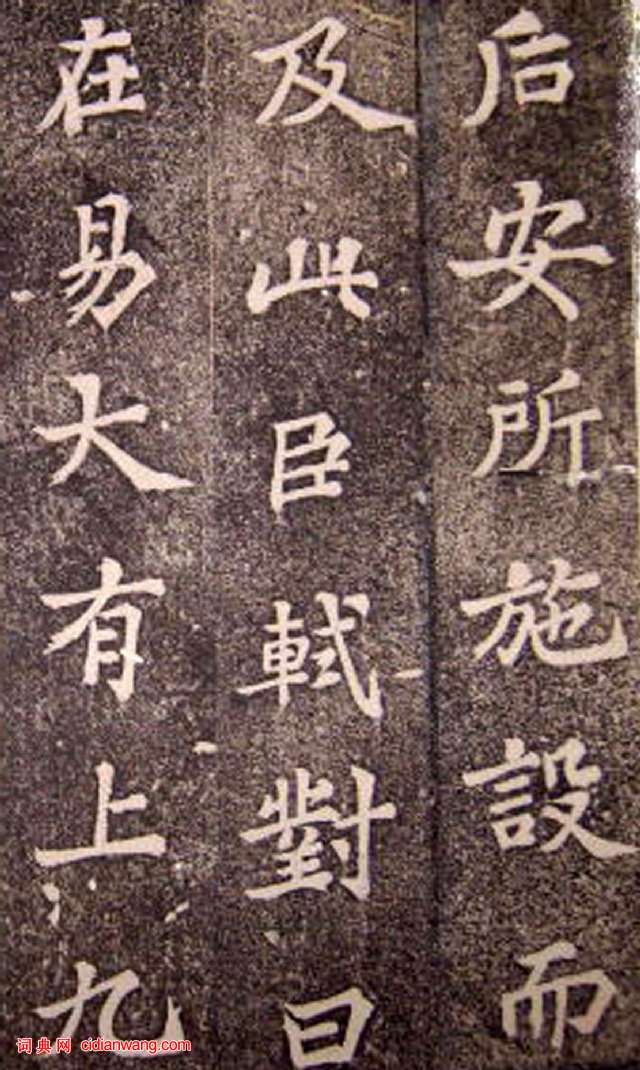 后安所施設而
及此臣軾對曰
在易大有上九
词典网 cidianwang.com